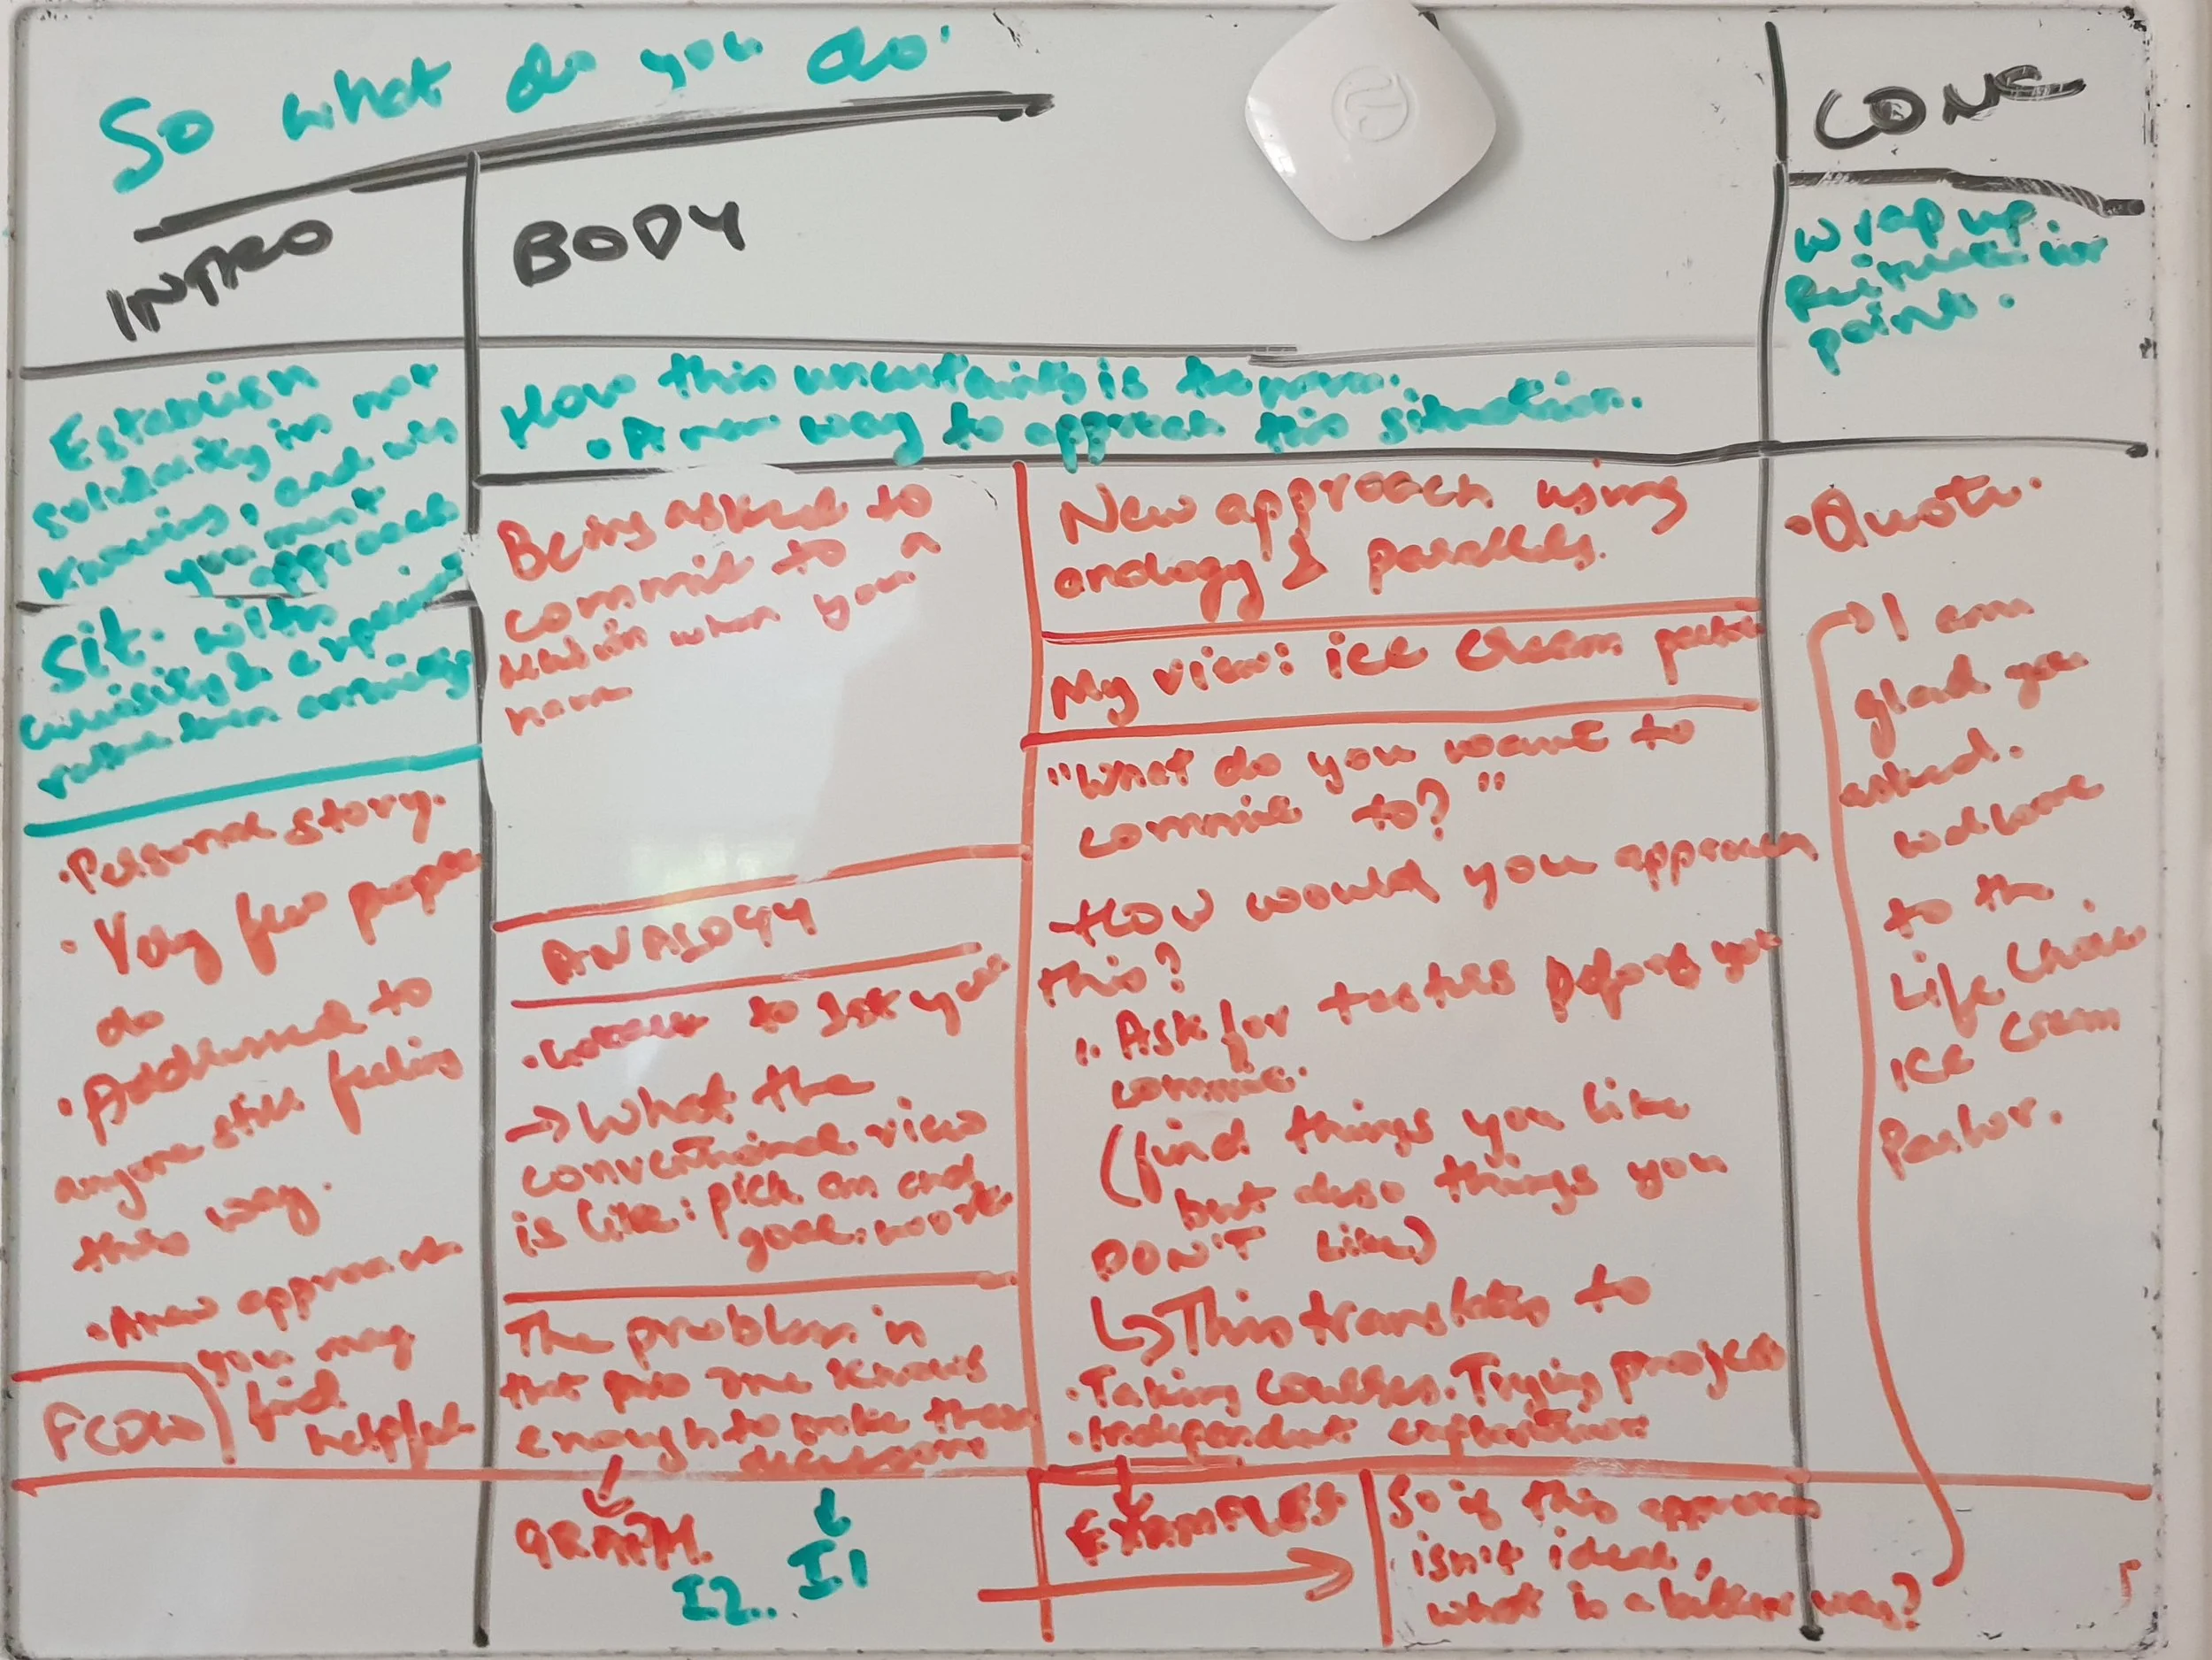 So what do you do.
INTRO
Establish
solidarity in not
knowing, and why
you must
approach
Sit. with
curiosity &
rather than
• Personal story.
• Very few people
do
• Addressed to
anyone still feeling
this way.
• A new approach
you may
find
helpful
FLOW
BODY
How this uncertainty is the norm.
• A new way to approach this situation.
Being asked to
commit to a
when you
ANALOGY
• to ask you
→ What the
conventional view
is like: pick an end
goal.
The problem is
that no one knows
enough to make these
decisions
GRAPH.
I2..
I1
New approach using
analogy & parallels.
My view: ice cream
"What do you want to
commit to?"
How would you approach
this?
1. Ask for tasters before you
commit.
(find things you like
but also things you
DON'T like)
↳ This translates to
• Taking courses. Trying projects
• Independent exploration
EXAMPLES
So if this approach
isn't ideal,
what is a better way?
CONC
Wrap up.
points.
• Quote.
I am
glad you
asked.
welcome
to the
Life Choice
ice cream
Parlor.